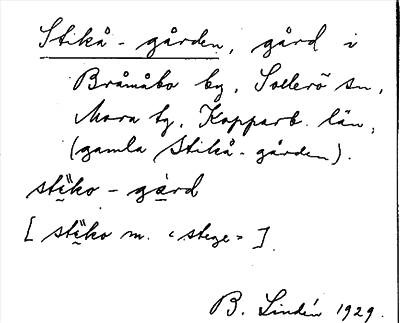 Stikå-gården, gård i
Bråmåbo by, Sollerö sn,
Mora tg, Kopparb. län,
(gamla Stikå-gården).
stiko-gård
[stiko m. «stege»]
B. Lindén 1929.